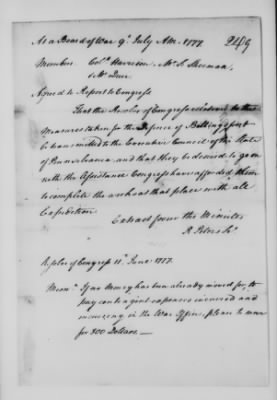 At a Board of War 9th July AM. 1777
Members Colo. Harrison. Mr. S. Sherman,
Mr. Duer
Agreed to Report to Congress
That the Resolves of Congress relative to the
Measures taken for the Defence of Billingsport
be transmitted to the Executive Council of the State
of Pennsylvania and that they be desired to go on
with the Assistance Congress have afforded them
to complete the works at that place with all
Expedition
Extract from the Minutes
R. Peters Secy
Resolve of Congress 11th June 1777.
Memo. If no money has been already moved for, to
pay contingent expences incurred and
incurring in the War Office, please to move
for 300 Dollars.